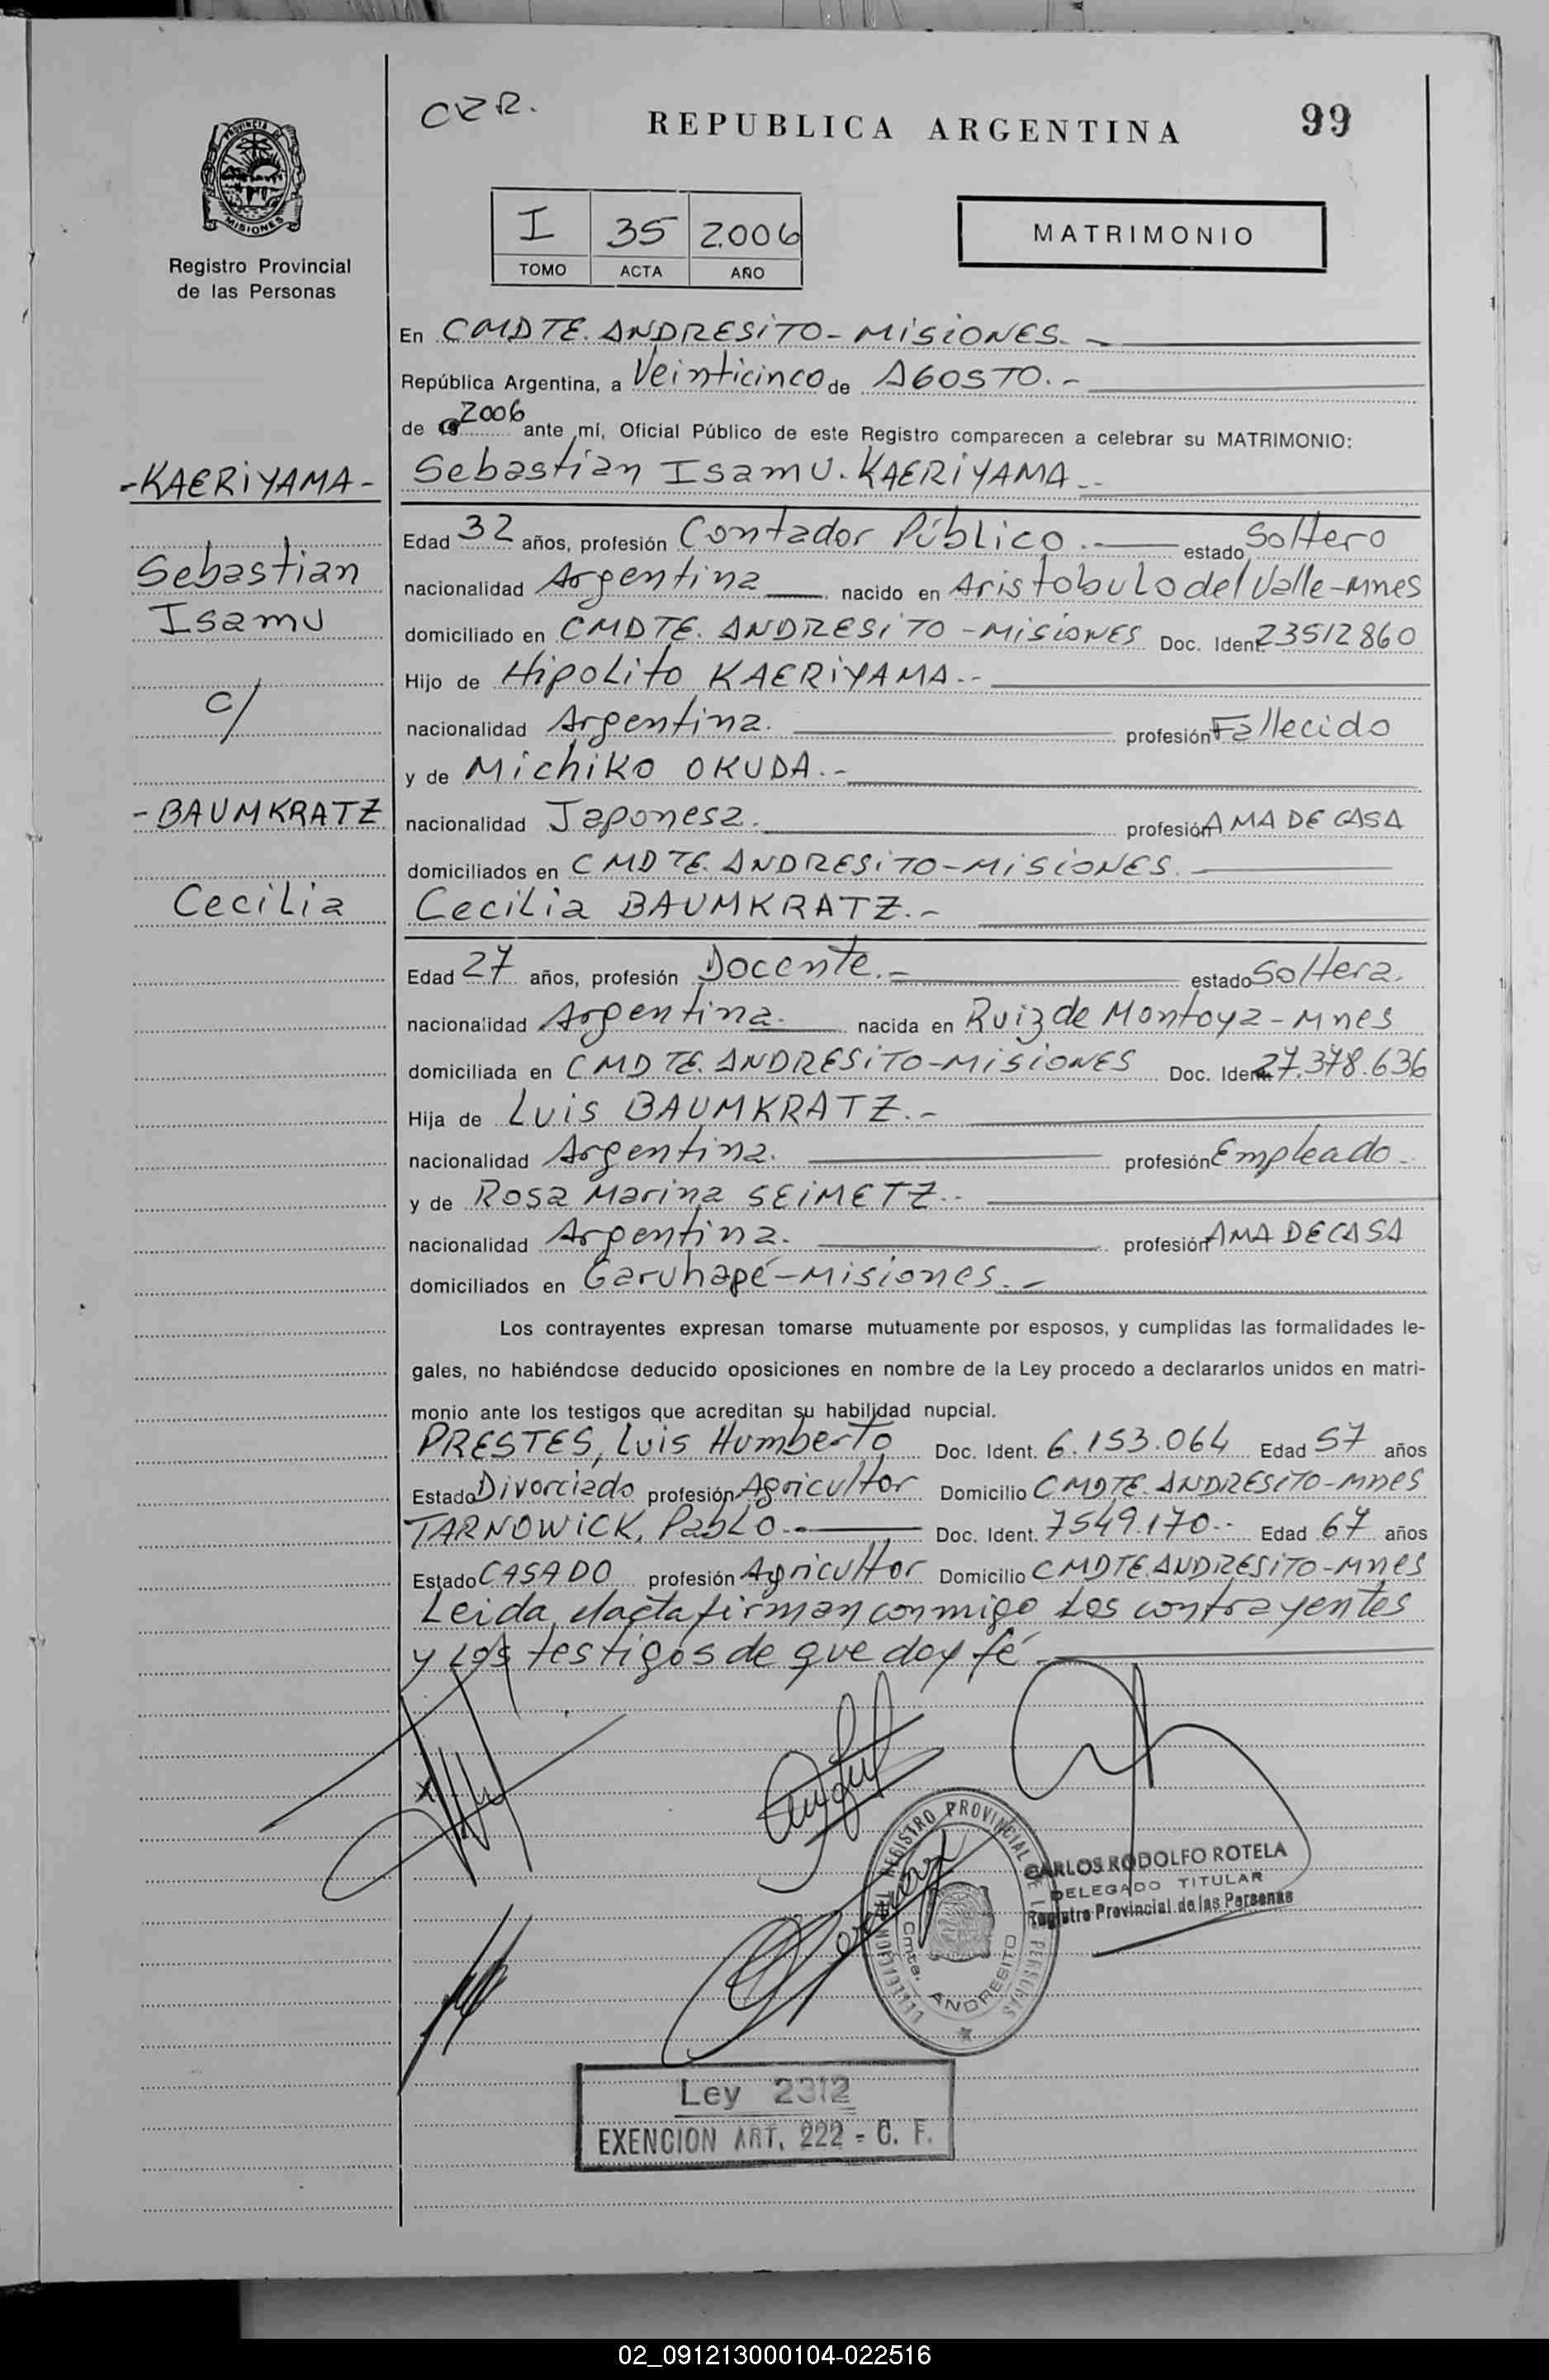 CZR.
REPUBLICA ARGENTINA
99
PROVINCIA DE
MISIONES
Registro Provincial
de las Personas
I 35 2006
TOMO ACTA AÑO
MATRIMONIO
En CMDTE. ANDRESiTO - MiSiONES.-
República Argentina, a Veinticinco de AGOSTO.-
de 2006 ante mí, Oficial Público de este Registro comparecen a celebrar su MATRIMONIO:
-KAERiYAMA-
Sebastián Isamu. KAERiYAMA.-
Edad 32 años, profesión Contador Público.- estado Soltero
Sebastian
nacionalidad Argentina nacido en Aristobulo del Valle-Mnes
Isamu
domiciliado en CMDTE. ANDRESiTO - MiSiONES Doc. Ident. 23512860
Hijo de Hipolito KAERiYAMA.-
c/
nacionalidad Argentina. profesión Fallecido
y de Michiko OKUDA.-
-BAUMKRATZ
nacionalidad Japonesa. profesión AMA DE CASA
domiciliados en CMDTE. ANDRESiTO-MiSiONES.
Cecilia
Cecilia BAUMKRATZ.-
Edad 27 años, profesión Docente.- estado Soltera.
nacionalidad Argentina. nacida en Ruiz de Montoya - Mnes
domiciliada en CMDTE. ANDRESiTO-MiSiONES Doc. Ident. 27.378.636
Hija de Luis BAUMKRATZ.-
nacionalidad Argentina. profesión Empleado.
y de Rosa Marina SEiMETZ.-
nacionalidad Argentina. profesión AMA DE CASA
domiciliados en Garuhapé-Misiones.-
Los contrayentes expresan tomarse mutuamente por esposos, y cumplidas las formalidades le-
gales, no habiéndose deducido oposiciones en nombre de la Ley procedo a declararlos unidos en matri-
monio ante los testigos que acreditan su habilidad nupcial.
PRESTES, Luis Humberto Doc. Ident. 6.153.064 Edad 57 años
Estado Divorciado profesión Agricultor Domicilio CMDTE. ANDRESiTO-Mnes
TARNOWiCK, Pablo.- Doc. Ident. 7549.170.- Edad 67 años
Estado CASADO profesión Agricultor Domicilio CMDTE. ANDRESiTO-Mnes
Leida, el acta firman conmigo Los contrayentes
y Los testigos de que doy fé.-
REGISTRO PROVINCIAL DE LAS PERSONAS
Cmte. ANDRESITO
CARLOS RODOLFO ROTELA
DELEGADO TITULAR
Registro Provincial de las Personas
Ley 2312
EXENCION ART. 222 - C. F.
02_091213000104-022516